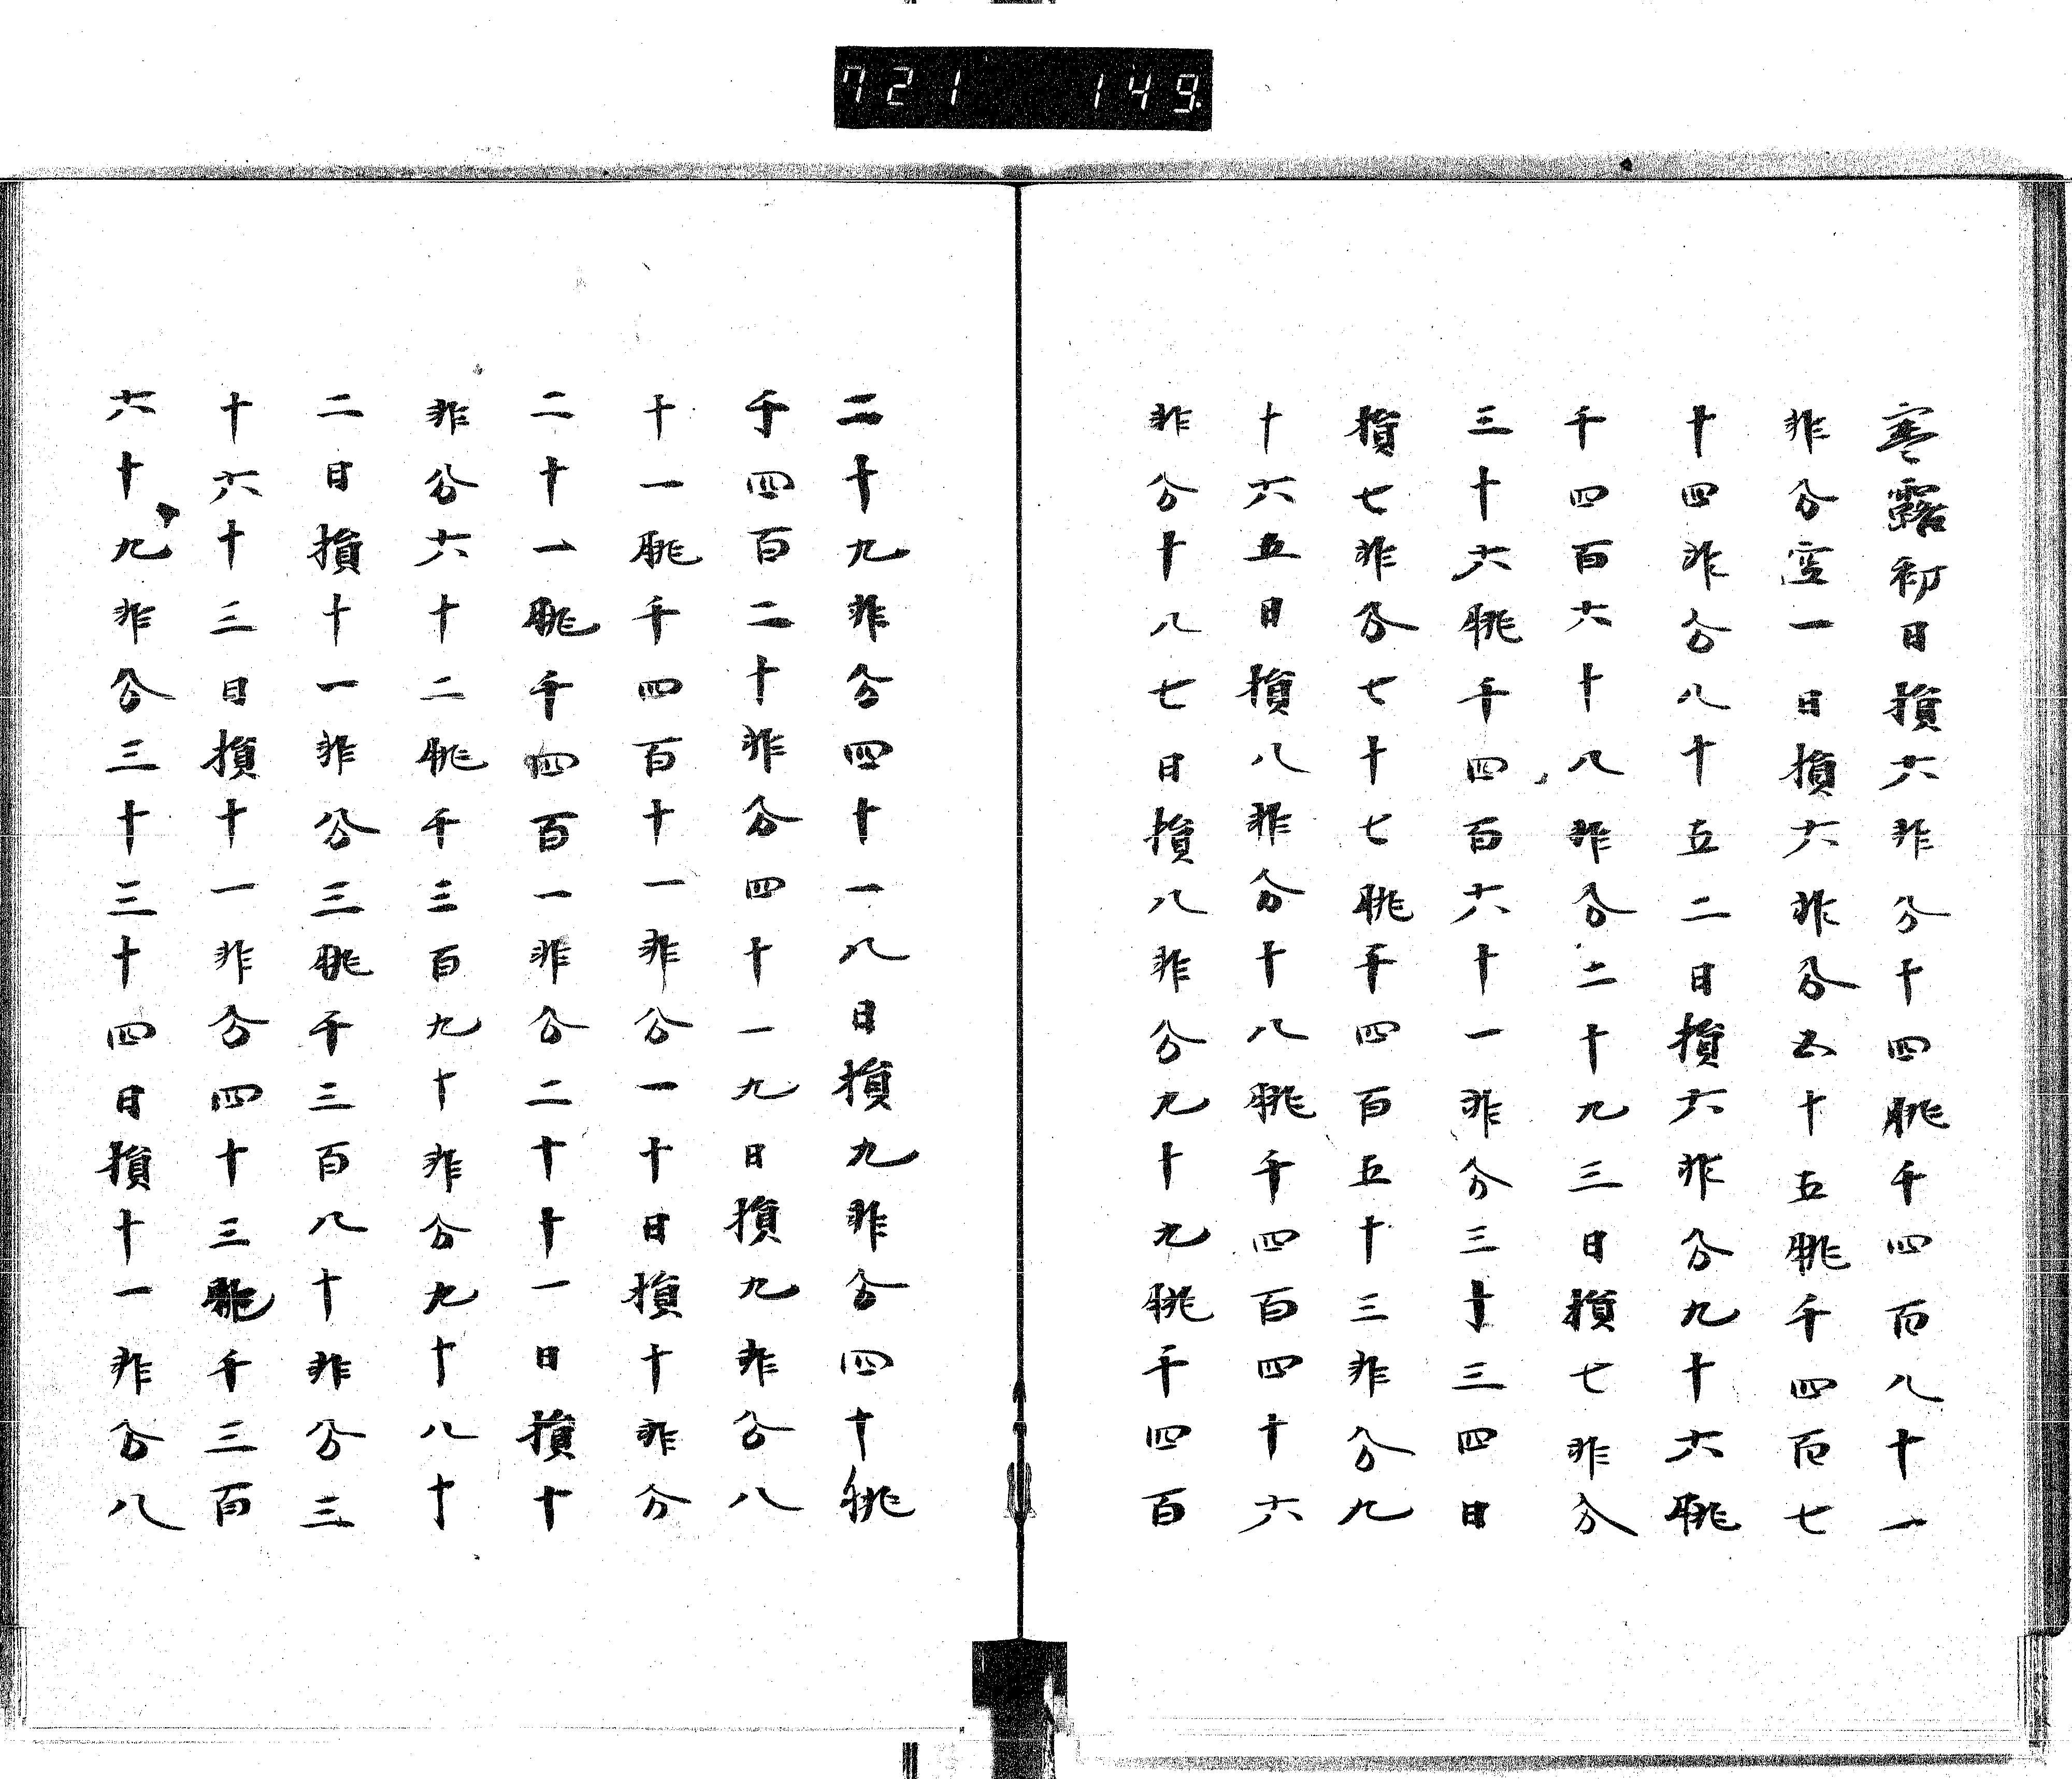 721 149
寒露初日損六非分十四朓千四百八十一
非分空一日損六非分五十五朓千四百七
十四非分八十五二日損六非分九十六朓
千四百六十八非分二十九三日損七非分
三十六朓千四百六十一非分三十三四日
損七非分七十七朓千四百五十三非分九
十六五日損八非分十八朓千四百四十六
非分十八七日損八非分九十九朓千四百
二十九非分四十一八日損九非分四十朓
千四百二十非分四十一九日損九非分八
十一朓千四百十一非分一十日損十非分
二十一朓千四百一非分二十十一日損十
非分六十二朓千三百九十非分九十八十
二日損十一非分三朓千三百八十非分三
十六十三日損十一非分四十三朓千三百
六十九非分三十三十四日損十一非分八